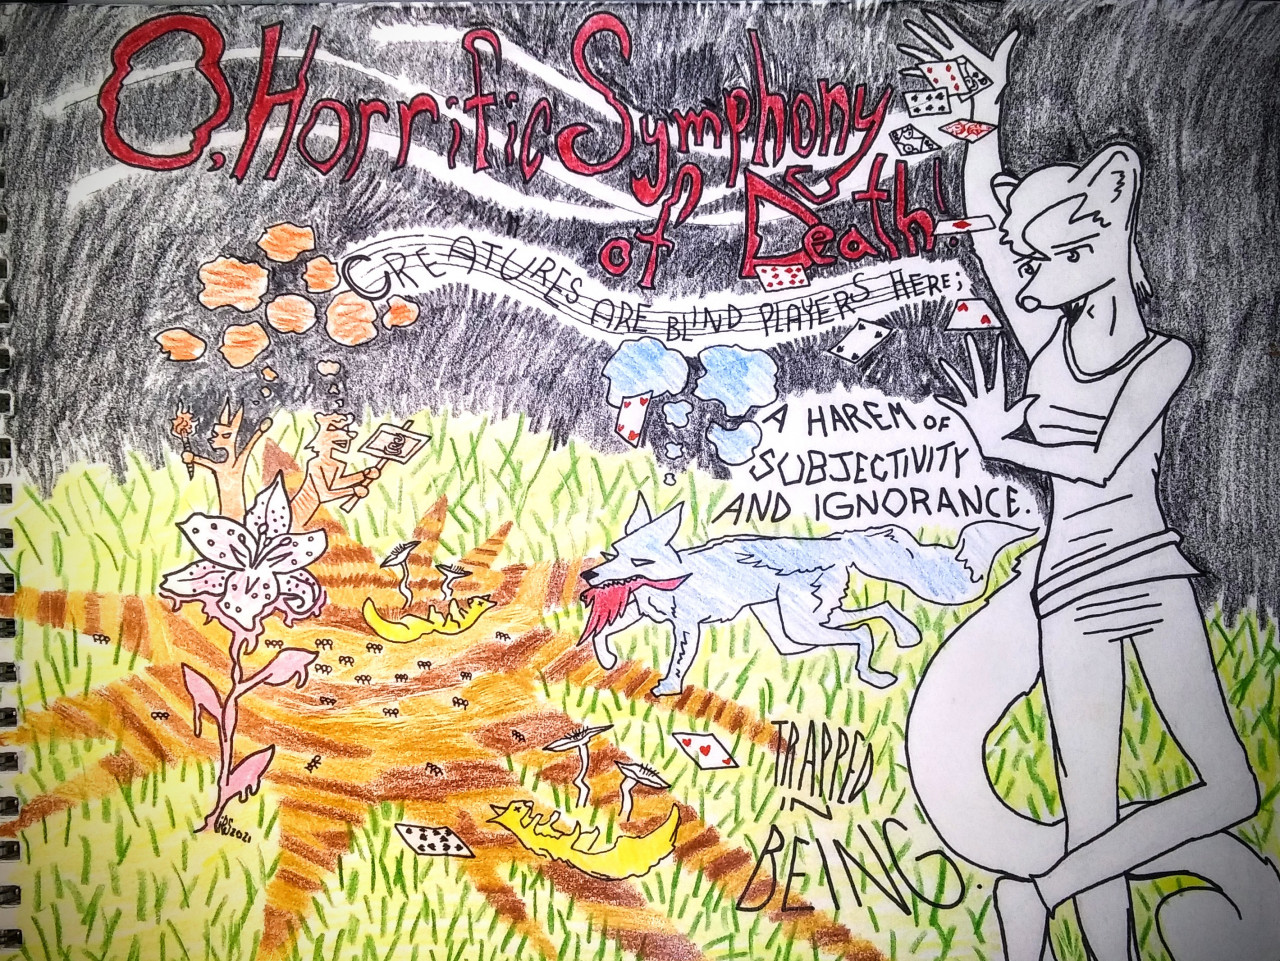 O, Horrific Symphony
of Death!
CREATURES ARE BLIND PLAYERS HERE;
A HAREM OF
SUBJECTIVITY
AND IGNORANCE.
TRAPPED
IN
BEING.
2021